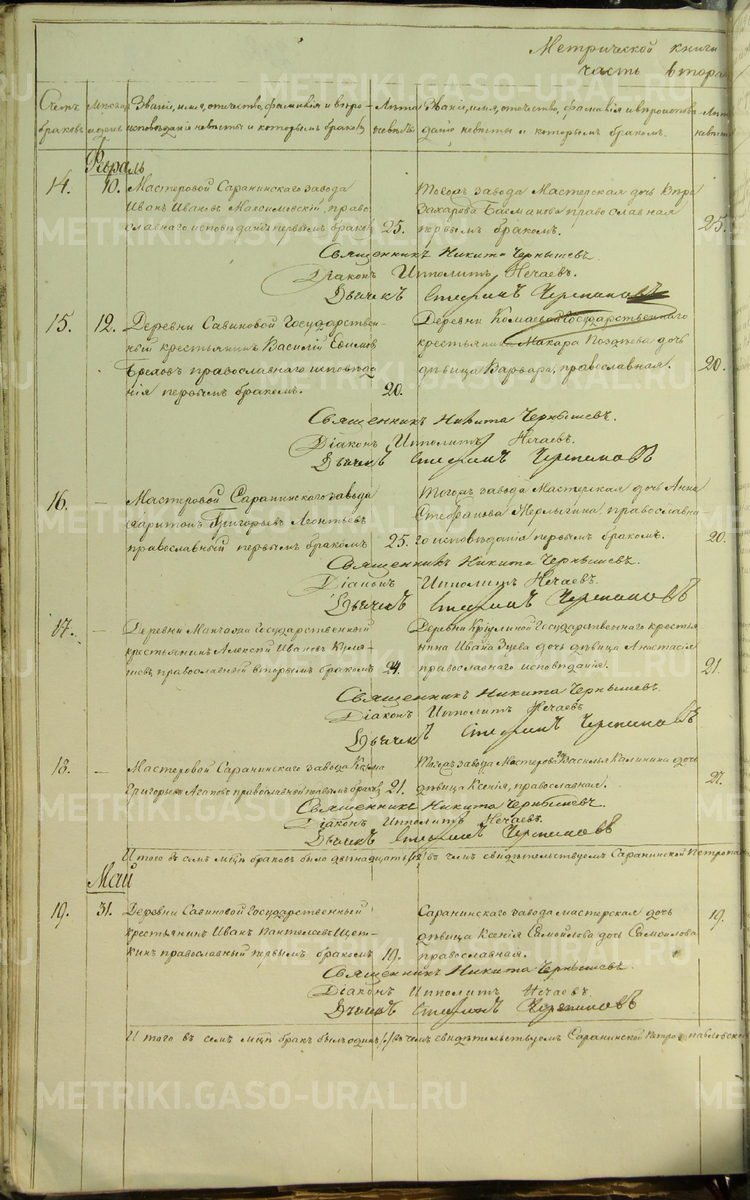 Метрической книги
часть втора
Счетъ браковъ
Мѣсяцъ и день
Званіе, имя, отечество, фамилія и вѣро-
исповѣданіе и которымъ бракомъ
Лѣта
Званіе, имя, отечество, фамилія и вѣроисповѣ-
даніе невѣсты и которымъ бракомъ.
Лѣта невѣсты
Февраль
14. 10. Мастеровой Саранинскаго завода
Иванъ Ивановъ Максимовскій, право-
славнаго исповѣданія первымъ бракомъ 25.
Тогожъ завода Мастерская дочь Вѣра
Захарова Басманова православная
первымъ бракомъ. 25.
Священникъ Никита Чернышевъ.
Діаконъ Ипполитъ Нечаевъ.
Дьячекъ Стефанъ Черепановъ
15. 12. Деревни Савиновой Государствен-
ный крестьянинъ Василій Ефимовъ
Бреховъ православнаго исповѣда-
нія первымъ бракомъ. 20.
Деревни Государственнаго
крестьянина Макара дочь
дѣвица Варвара, православная. 20.
Священникъ Никита Чернышевъ.
Діаконъ Ипполитъ Нечаевъ.
Дьячекъ Стефанъ Черепановъ
16. — Мастеровой Саранинскаго завода
Харитонъ Григорьевъ Леонтьевъ
православный первымъ бракомъ 25.
Тогожъ завода Мастерская дочь Анна
Стефанова православна-
го исповѣданія первымъ бракомъ. 20.
Священникъ Никита Чернышевъ.
Діаконъ Ипполитъ Нечаевъ.
Дьячекъ Стефанъ Черепановъ
17. — Деревни Манчажи Государственный
крестьянинъ Алексѣй Ивановъ Куля-
шовъ, православный вторымъ бракомъ 24.
Деревни Крюлиной Государственнаго крестья-
нина Ивана Зуева дочь дѣвица Анастасія
православнаго исповѣданія. 21.
Священникъ Никита Чернышевъ.
Діаконъ Ипполитъ Нечаевъ
Дьячекъ Стефанъ Черепановъ
18. — Мастеровой Саранинскаго завода Козма
Григорьевъ Агаповъ православной первымъ бракомъ 21.
Тогожъ завода Мастероваго Василья Калинина дочь
дѣвица Ксенія, православная. 21.
Священникъ Никита Чернышевъ.
Діаконъ Ипполитъ Нечаевъ.
Дьячекъ Стефанъ Черепановъ
Итого въ семъ мцѣ браковъ было двенадцать въ чемъ свидѣтельствуемъ Саранинской Петропав
Май
19. 31. Деревни Савиновой Государственный
крестьянинъ Иванъ Пантелеевъ Щеп-
кинъ православный первымъ бракомъ 19.
Саранинскаго завода мастерская дочь
дѣвица Ксенія Самойлова дочь Самойлова
православная. 19.
Священникъ Никита Чернышевъ.
Діаконъ Ипполитъ Нечаевъ.
Дьячекъ Стефанъ Черепановъ
Итого въ семъ мцѣ бракъ былъ одинъ /1/ въ чемъ свидѣтельствуемъ Саранинской Петропавловской
METRIKI.GASO-URAL.RU